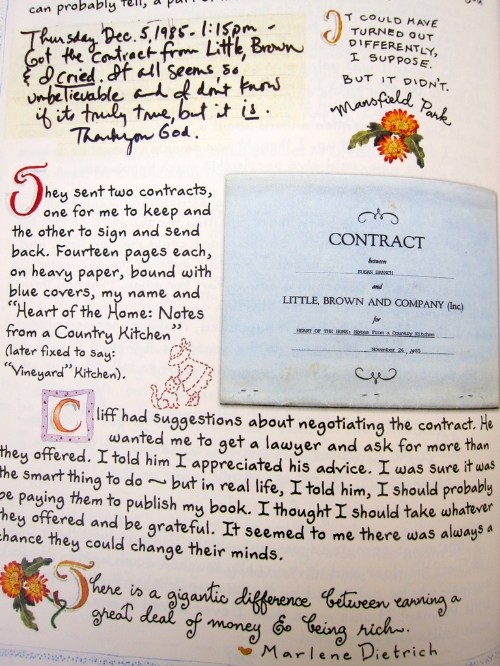 can probably tell, a part of
Thursday Dec. 5, 1985. 1:15pm -
Got the contract from Little, Brown
& I cried. It all seems so
unbelievable and I don't know
if its truly true, but it is.
Thank you God.
IT COULD HAVE
TURNED OUT
DIFFERENTLY,
I SUPPOSE.
BUT IT DIDN'T.
Mansfield Park
They sent two contracts,
one for me to keep and
the other to sign and send
back. Fourteen pages each,
on heavy paper, bound with
blue covers, my name and
"Heart of the Home: Notes
from a Country Kitchen"
(later fixed to say:
"Vineyard" Kitchen).
CONTRACT
between
SUSAN BRANCH
and
LITTLE, BROWN AND COMPANY (Inc.)
for
HEART OF THE HOME: Notes From a Country Kitchen
November 26, 1985
Cliff had suggestions about negotiating the contract. He
wanted me to get a lawyer and ask for more than
they offered. I told him I appreciated his advice. I was sure it was
the smart thing to do ~ but in real life, I told him, I should probably
be paying them to publish my book. I thought I should take whatever
they offered and be grateful. It seemed to me there was always a
chance they could change their minds.
There is a gigantic difference between earning a
great deal of money & being rich.
Marlene Dietrich